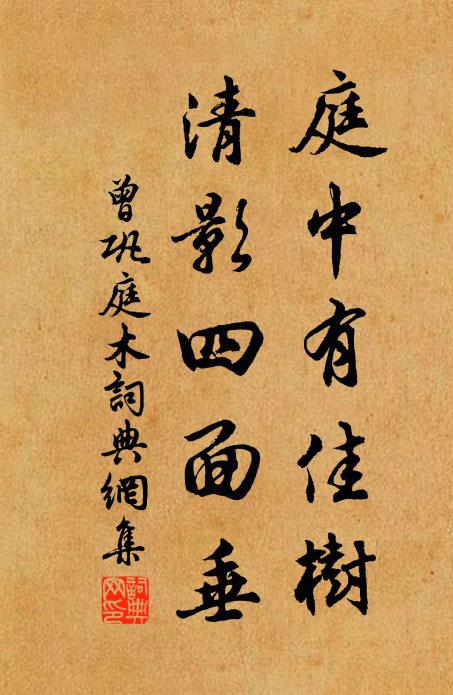 庭中有佳樹
清影四面垂
曾巩庭木詞典網集
詞典网印